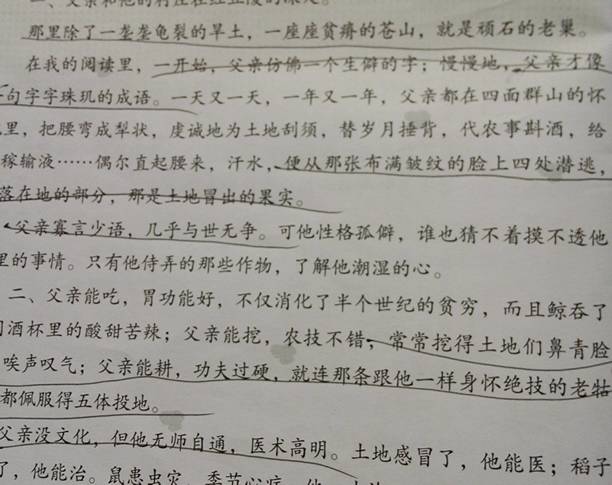 一、父亲和他的村庄在红丘陵的深处。
那里除了一垄垄龟裂的旱土，一座座贫瘠的苍山，就是顽石的老巢。
在我的阅读里，一开始，父亲仿佛一个生僻的字；慢慢地，父亲才像
一句字字珠玑的成语。一天又一天，一年又一年，父亲都在四面群山的怀
里，把腰弯成犁状，虔诚地为土地刮须，替岁月捶背，代农事斟酒，给
稼输液……偶尔直起腰来，汗水，便从那张布满皱纹的脸上四处潜逃，
落在地的部分，那是土地冒出的果实。
父亲寡言少语，几乎与世无争。可他性格孤僻，谁也猜不着摸不透他
里的事情。只有他侍弄的那些作物，了解他潮湿的心。
二、父亲能吃，胃功能好，不仅消化了半个世纪的贫穷，而且鲸吞了
酒杯里的酸甜苦辣；父亲能挖，农技不错，常常挖得土地们鼻青脸
唉声叹气；父亲能耕，功夫过硬，就连那条跟他一样身怀绝技的老牯
都佩服得五体投地。
父亲没文化，但他无师自通，医术高明。土地感冒了，他能医；稻子
了，他能治。鼠患虫灾，季节心病，他